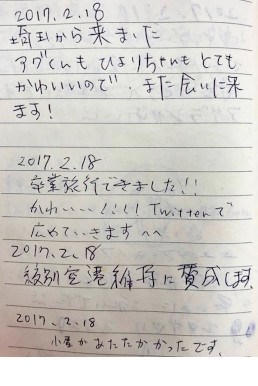 2017.2.18
埼玉から来ました
アグくんもひよりちゃんもとても
かわいいので、また会いに来
ます!
2017.2.18
卒業旅行できました!!
かわいい!!!! Twitterで
広めていきます^^
2017.2.18
紋別空港維持に賛成します。
2017.2.18
小屋があたたかかったです。